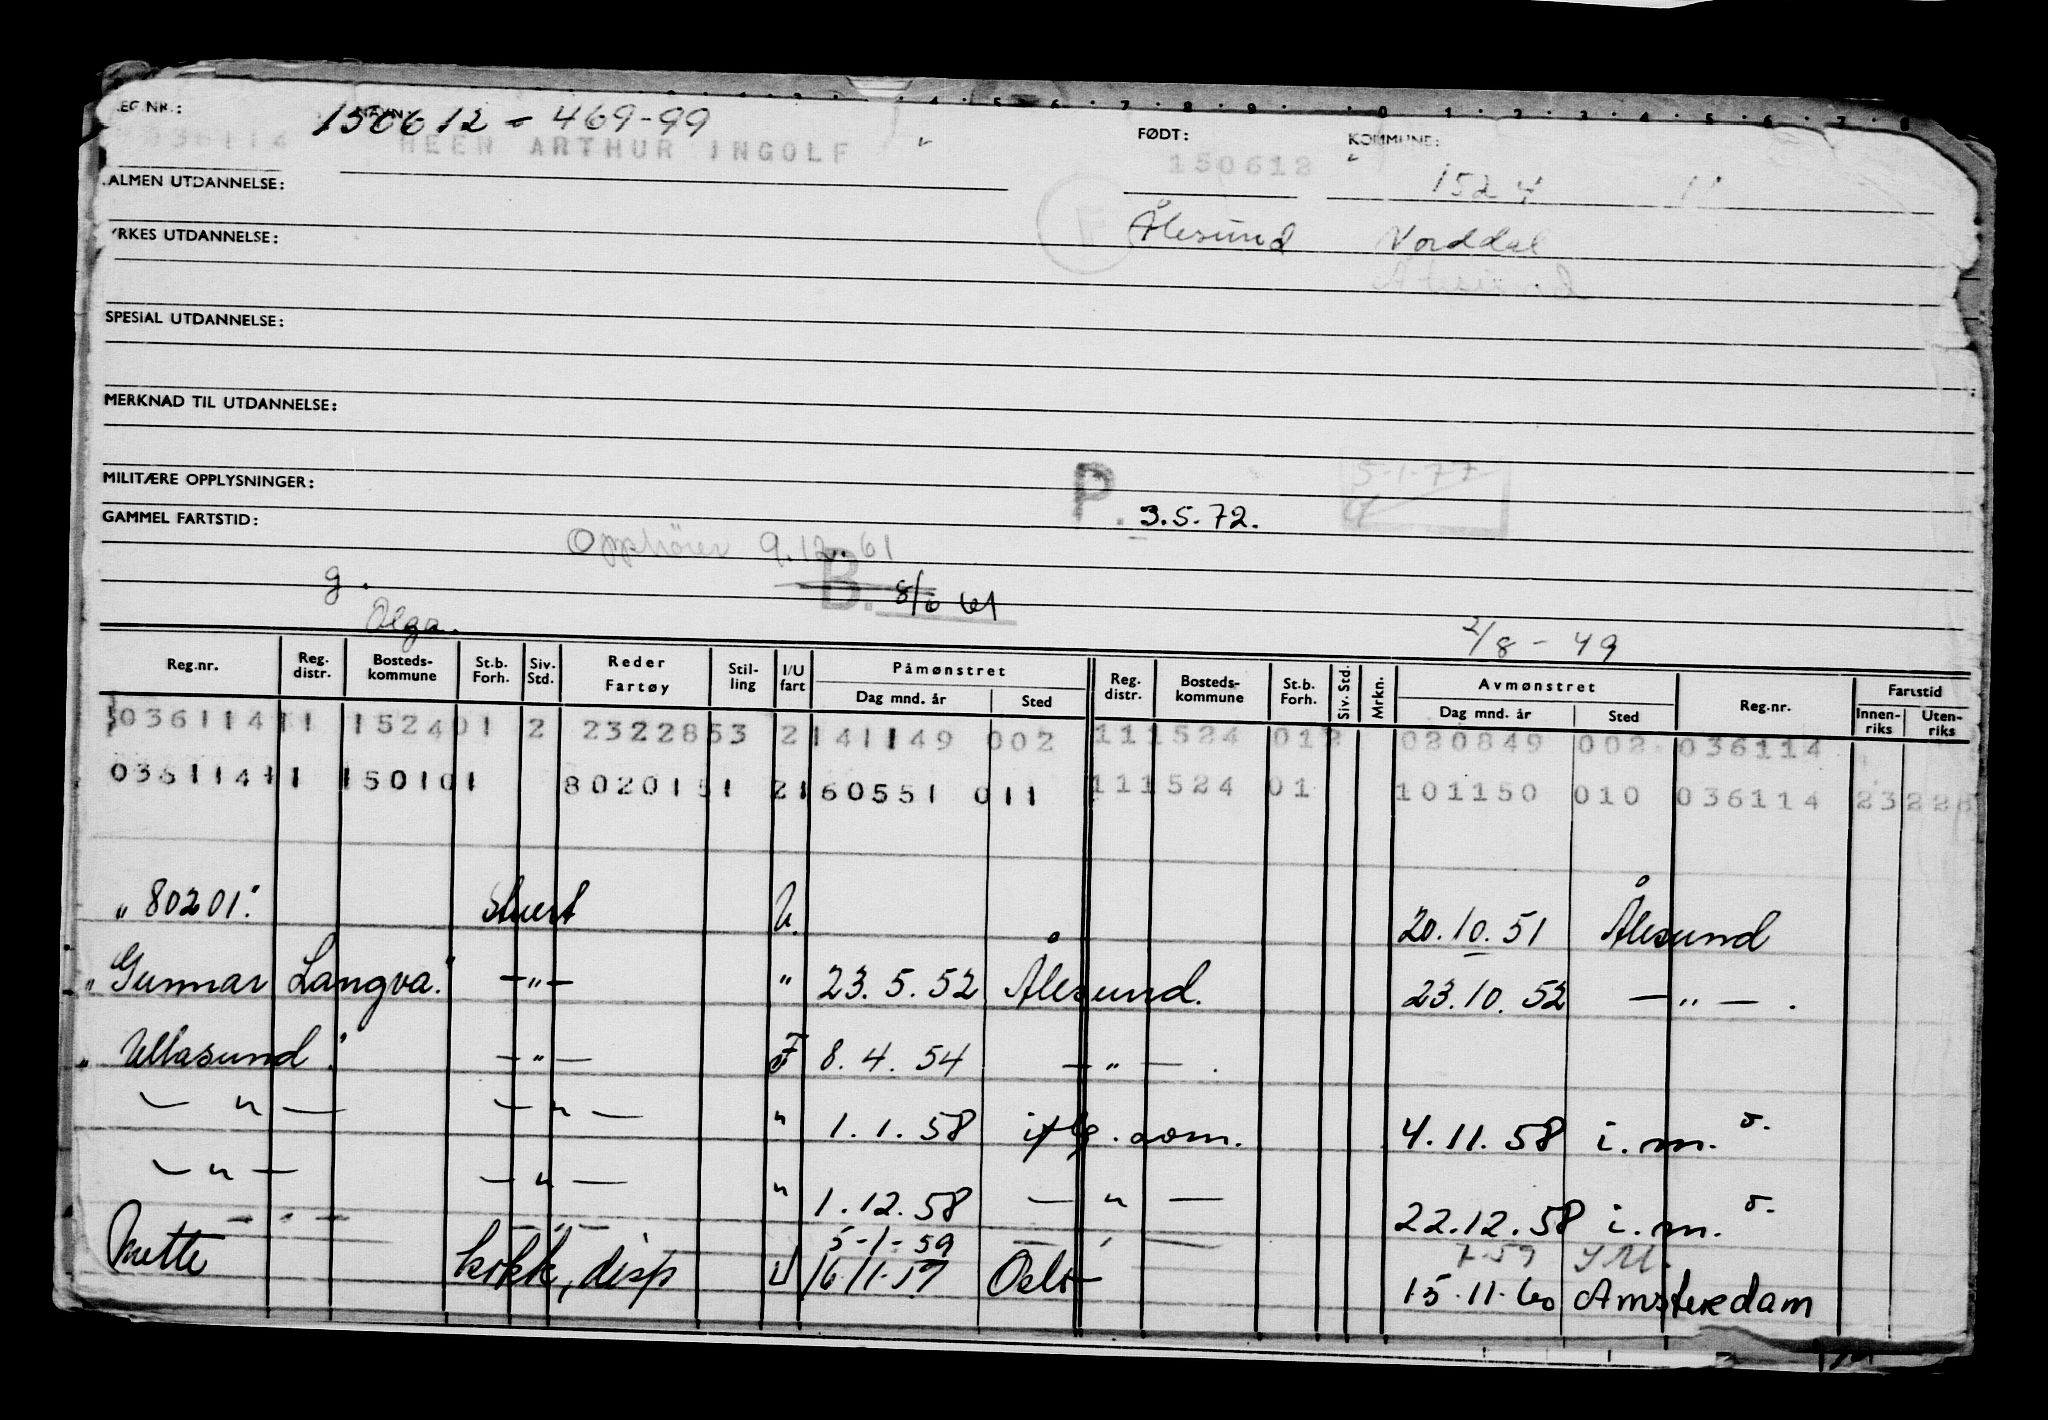 REG.NR.: NAVN: 150612 - 469-99 FØDT: KOMMUNE:
036114 HEEN ARTHUR INGOLF 150612 1524
ALMEN UTDANNELSE:
Ålesund Norddal
YRKES UTDANNELSE:
Ålesund
SPESIAL UTDANNELSE:
MERKNAD TIL UTDANNELSE:
MILITÆRE OPPLYSNINGER: 5-1-77
P. 3.5.72.
GAMMEL FARTSTID:
Opphører 9.12.61
g. B. 8/6 61
Olga. 2/8 - 49
Reg.nr. Reg. distr. Bosteds- kommune St.b. Forh. Siv. Std. Reder Fartøy Stil- ling I/U fart Påmønstret Reg. distr. Bosteds- kommune St.b. Forh. Siv. Std. Mrkn. Avmønstret Reg.nr. Fartstid
Dag mnd. år Sted Dag mnd. år Sted Innen- riks Uten- riks
036114 11 1524 01 2 2322853 2 141149 002 11 1524 01 2 020849 002 036114
036114 11 1501 01 8020151 2 160551 011 11 1524 01 101150 010 036114 23 228
"80201" Stuert U. 20.10.51 Ålesund
"Gunnar Langva." -"- " 23.5.52 Ålesund. 23.10.52 -"-.
"Ullasund." -"- F 8.4.54 -"-.
-"- -"- " 1.1.58 iflg. som. 4.11.58 i.m.o.
-"- -"- " 1.12.58 -"- 22.12.58 i.m.o.
-"- -"- 5-1-59 -"- 7-59 I.M.
Anette kokk, disp U 16/11-59 Oslo 15.11.60 Amsterdam